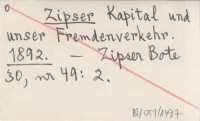 Zipser Kapital und
unser Fremdenverkehr.
1892. — Zipser Bote
30, nr 49: 2.